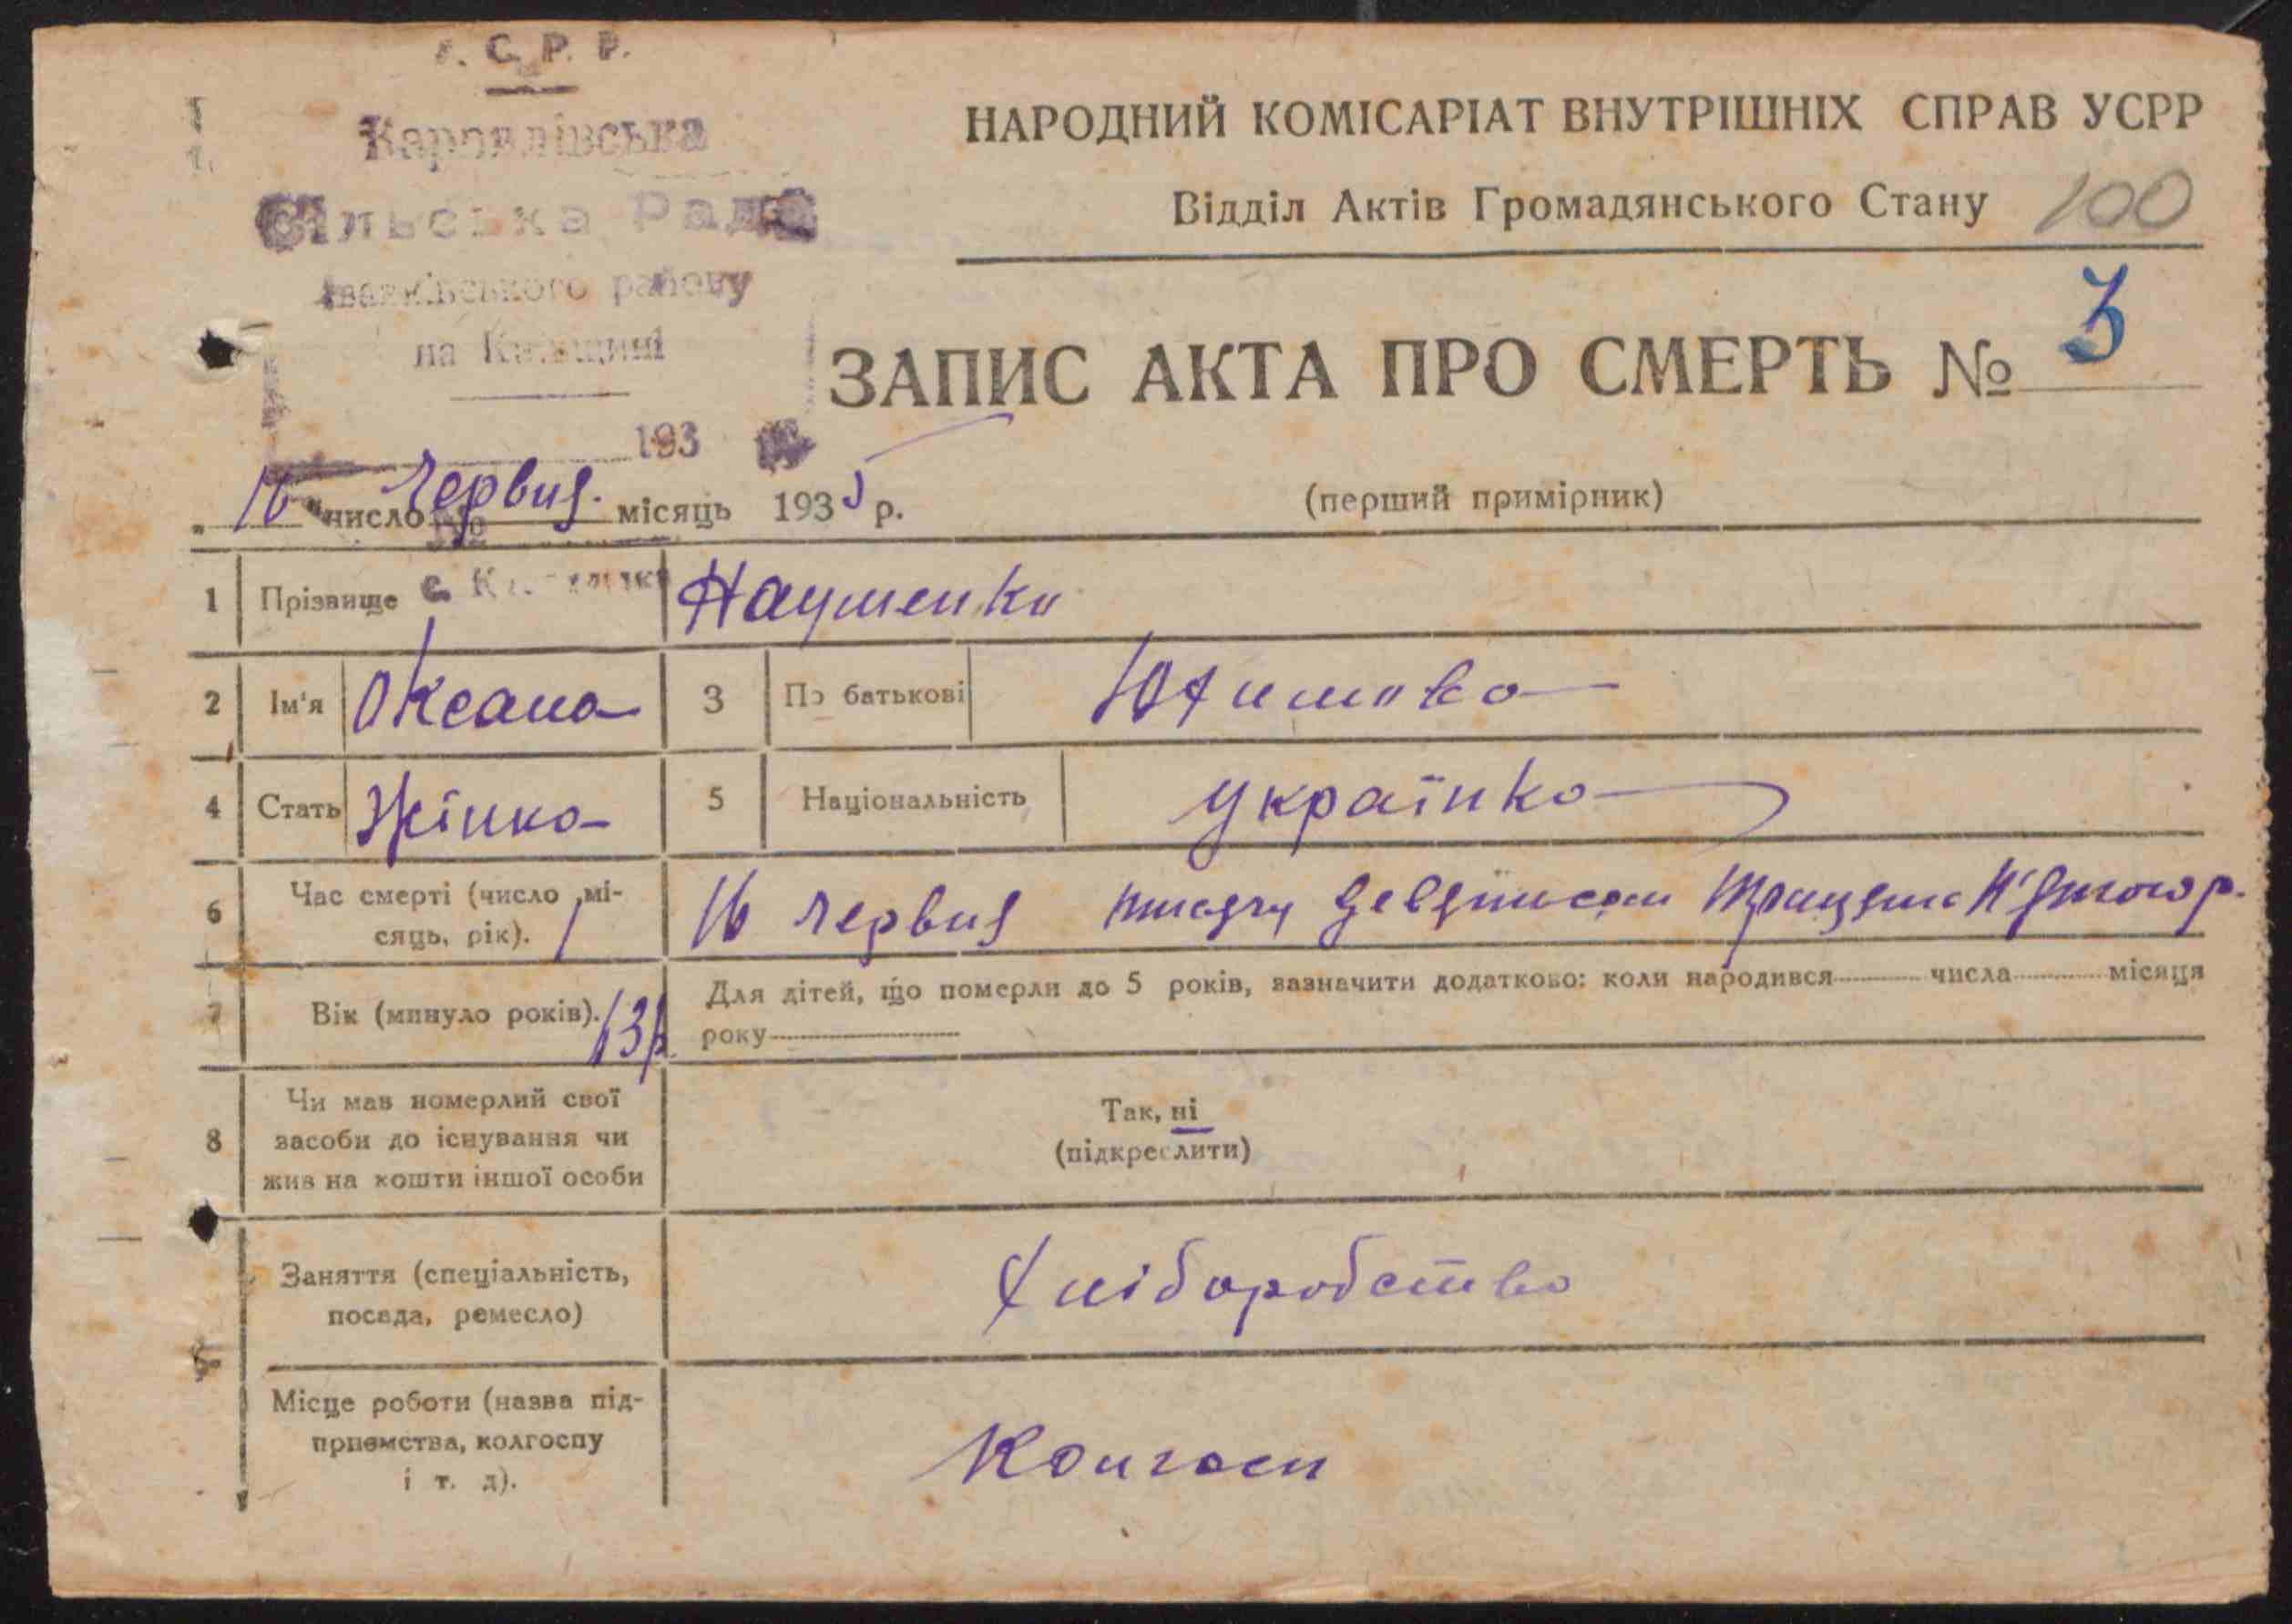 С. Р. Р.
Сільська Рада
району
на Київщині
193
НАРОДНИЙ КОМІСАРІАТ ВНУТРІШНІХ СПРАВ УСРР
Відділ Актів Громадянського Стану 100
ЗАПИС АКТА ПРО СМЕРТЬ № 3
„16" число Червня місяць 1935 р.
(перший примірник)
1 Прізвище Науменко
2 Ім'я Оксана 3 По батькові Юхимова
4 Стать Жінка 5 Національність Українка
6 Час смерті (число, місяць, рік). 16 червня тисяча девятисот тридцять п'ятого р.
7 Вік (минуло років). 13 р. Для дітей, що померли до 5 років, зазначити додатково: коли народився числа місяця
року
8 Чи мав померлий свої
засоби до існування чи
жив на кошти іншої особи
Так, ні
(підкреслити)
Заняття (спеціальність,
посада, ремесло)
Хліборобство
Місце роботи (назва під-
приємства, колгоспу
і т. д).
Колгосп